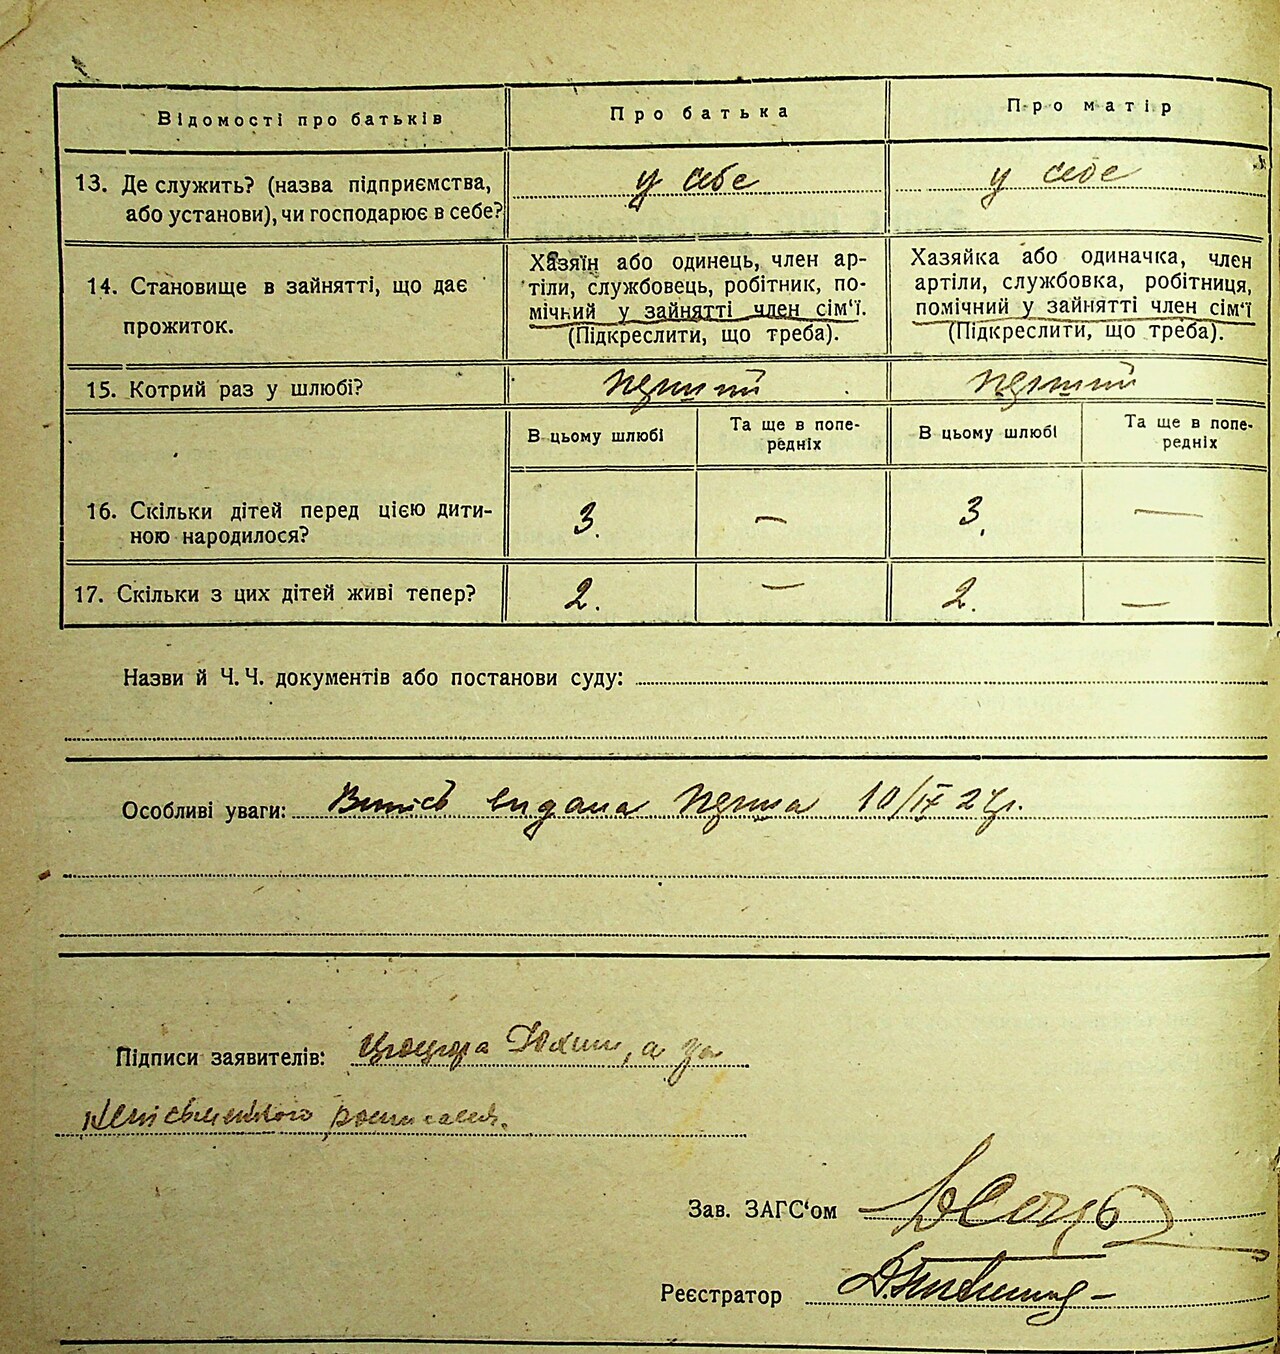 Відомості про батьків
Про батька
Про матір
13. Де служить? (назва підприємства,
або установи), чи господарює в себе?
у себе
у себе
14. Становище в зайнятті, що дає
прожиток.
Хазяїн або одинець, член ар-
тіли, службовець, робітник, по-
мічний у зайнятті член сім‘ї.
(Підкреслити, що треба).
Хазяйка або одиначка, член
артіли, службовка, робітниця,
помічний у зайнятті член сім‘ї
(Підкреслити, що треба).
15. Котрий раз у шлюбі?
перший
перший
В цьому шлюбі
Та ще в попе-
редніх
В цьому шлюбі
Та ще в попе-
редніх
16. Скільки дітей перед цією дити-
ною народилося?
3.
—
3.
—
17. Скільки з цих дітей живі тепер?
2.
—
2.
—
Назви й Ч. Ч. документів або постанови суду:
Особливі уваги: Випісь видана перша 10/IX 27р.
Підписи заявителів: Юхим, а за
неписьменного росписался.
Зав. ЗАГС‘ом
Реєстратор